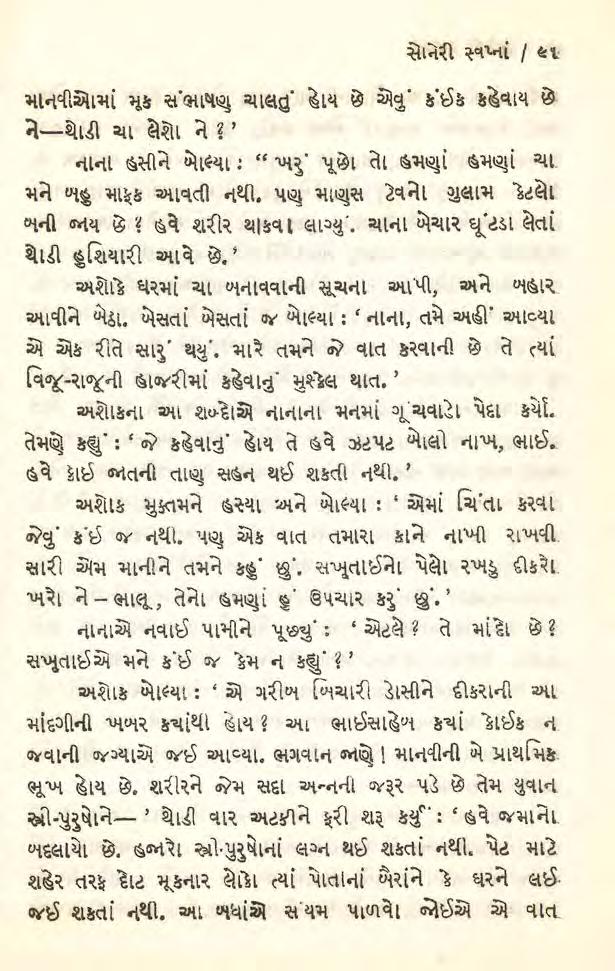 સોનેરી સ્વપ્નાં / ૯૧
માનવીઓમાં મૂક સંભાષણ ચાલતું હોય છે એવું કંઈક કહેવાય છે
ને—થોડી ચા લેશો ને ?’
નાના હસીને બોલ્યા : “ ખરું પૂછો તો હમણાં હમણાં ચા
મને બહુ માફક આવતી નથી. પણ માણસ ટેવનો ગુલામ કેટલો
બની જાય છે ? હવે શરીર થાકવા લાગ્યું. ચાના બેચાર ઘૂંટડા લેતાં
થોડી હુશિયારી આવે છે.’
અશોકે ઘરમાં ચા બનાવવાની સૂચના આપી, અને બહાર
આવીને બેઠા. બેસતાં બેસતાં જ બોલ્યા : ‘ નાના, તમે અહીં આવ્યા
એ એક રીતે સારું થયું. મારે તમને જે વાત કરવાની છે તે ત્યાં
વિજૂ-રાજૂની હાજરીમાં કહેવાનું મુશ્કેલ થાત. ’
અશોકના આ શબ્દોએ નાનાના મનમાં ગૂંચવાડો પેદા કર્યો.
તેમણે કહ્યું : ‘ જે કહેવાનું હોય તે હવે ઝટપટ બોલી નાખ, ભાઈ.
હવે કોઈ જાતની તાણ સહન થઈ શકતી નથી.’
અશોક મુક્તમને હસ્યા અને બોલ્યા : ‘ એમાં ચિંતા કરવા
જેવું કંઈ જ નથી. પણ એક વાત તમારા કાને નાખી રાખવી
સારી એમ માનીને તમને કહું છું. સખુતાઈનો પેલો રખડુ દીકરો
ખરો ને – ભાલૂ, તેનો હમણાં હું ઉપચાર કરું છું.’
નાનાએ નવાઈ પામીને પૂછ્યું : ‘ એટલે ? તે માંદો છે ?
સખુતાઈએ મને કંઈ જ કેમ ન કહ્યું ?’
અશોક બોલ્યા : ‘ એ ગરીબ બિચારી ડોસીને દીકરાની આ
માંદગીની ખબર કયાંથી હોય ? આ ભાઈસાહેબ કયાં કોઈક ન
જવાની જગ્યાએ જઈ આવ્યા. ભગવાન જાણે ! માનવીની બે પ્રાથમિક
ભૂખ હોય છે. શરીરને જેમ સદા અન્નની જરૂર પડે છે તેમ યુવાન
સ્ત્રી-પુરુષોને— ’ થોડી વાર અટકીને ફરી શરૂ કર્યું : ‘ હવે જમાનો
બદલાયો છે. હજારો સ્ત્રી-પુરુષોનાં લગ્ન થઈ શકતાં નથી. પેટ માટે
શહેર તરફ દોટ મૂકનાર લોકો ત્યાં પોતાનાં બૈરાંને કે ઘરને લઈ
જઈ શકતાં નથી. આ બધાંએ સંયમ પાળવો જોઈએ એ વાત